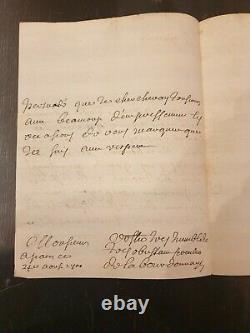 persuadé que je chercheray toujours
avec beaucoup d'empressement les
occasions de vous marquer que
je suis avec respect
Monsieur
a paris ce
aoust
vostre tres humble et
tres obeissant serviteur
de la bourdonnaye